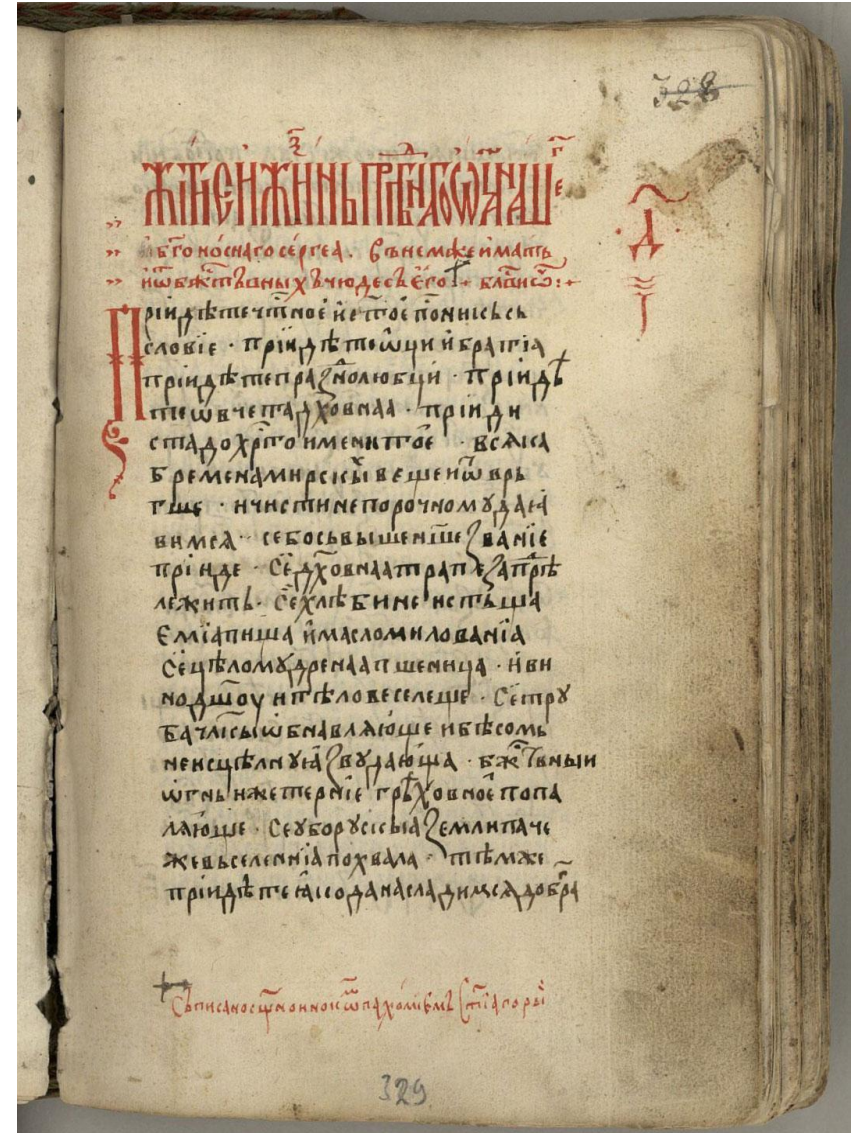 328
Житїе и жизнь прпⷣбнаго ѡц҃а наше
го бг҃оноснаго сергеа. в немже имать
и ѿ бжⷭ҇твъныхъ чюдесъ е҆го. блгⷭ҇ви ѿ:
д҃
Прїидѣте чтⷭ҇ное и҆ ст҃ое постникъ съ
словїе · прїидѣте ѡ҆ц҃и и҆ братїа
прїидѣте празⷣнолюбци · прїидѣ
те ѡ҆вчета дх҃овнаа · прїиди
стадо хрⷭ҇тоименитое · всяка
бремена мирскыⷯ вещеи ѿврь
гше · и чисти непорочному да ꙗ
вимся · се бо съвышенⸯшее званїе
прїиде · Се дх҃овнаа трапеза прⷣѣ
лежить · Се хлѣби неистъща
емїа пища и҆ масло милованїа
Се цѣломудренаа пшеница · и҆ ви
но дш҃оу и тѣло веселеще · Се тру
ба чл҃кы ѡ҆бнавляюще и бѣсомь
неисцѣлную ꙗзву дающа · бжⷭ҇твныи
ѡ҆гнь иже тернїе грѣховное попа
ляюще · Се убо русскыа земли паче
же въселеннїа похвала · тѣмже
прїидѣте ꙗко да насладимся добрⷪ҇а
Съписано сщ҃енноинокѡⷨ пахомїемъ ст҃ыа горы
329